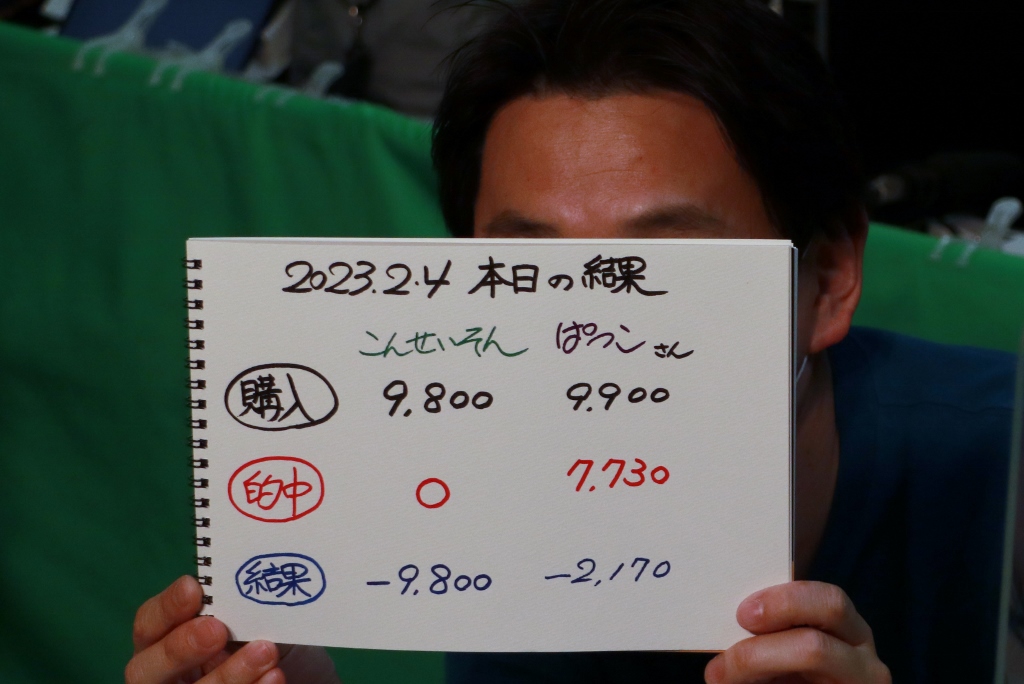 2023.2.4 本日の結果
こんせいそん ぱつこさん
購入 9.800 9.900
的中 0 7.730
結果 -9.800 -2,170